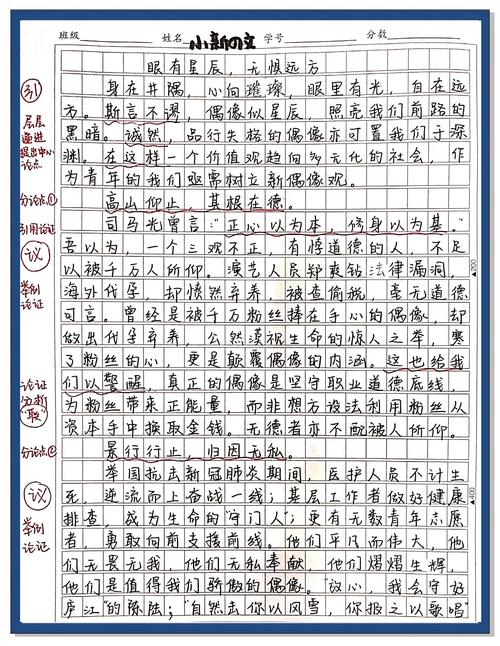 班级 姓名 小新の文 学号 分数
眼有星辰，无惧远方
引
身在井隅，心向璀璨，眼里有光，自在远
方。斯言不谬，偶像似星辰，照亮我们前路的
层层递进提出中心论点
黑暗。诚然，品行失格的偶像亦可置我们于深
渊。在这样一个价值观趋向多元化的社会，作
为青年的我们亟需树立新偶像观。
分论点①
高山仰止，其根在德。
引用论证
司马光曾言：“正心以为本，修身以为基。”
议
吾以为，一个三观不正，有悖道德的人，不足
以被千万人所仰。演艺人员郑爽钻法律漏洞，
200
举例论证
海外代孕，却愤然弃养，被查偷税，毫无道德
可言。曾经是被千万粉丝捧在手心的偶像，却
做出代孕弃养，公然漠视生命的惊人之举，寒
了粉丝的心，更是颠覆偶像的内涵。这也给我
论证分析“取”
们以警醒，真正的偶像是坚守职业道德底线
为粉丝带来正能量，而非想方设法利用粉丝从
资本手中换取金钱。无德者亦不配被人所仰。
分论点②
景行行止，归因无私。
议
举国抗击新冠肺炎期间，医护人员不计生
死，逆流而上奋战一线；基层工作者做好健康
400
举例论证
排查，成为生命的“守门人”；更有无数青年志愿
者，勇敢向前支援前线。他们平凡而伟大，他
们无畏无我，他们无私奉献，他们熠熠生辉，
他们是值得我们骄傲的偶像。“放心，我会守好
庐江”的陈陆；“自然击你以风雪，你报之以歌唱”